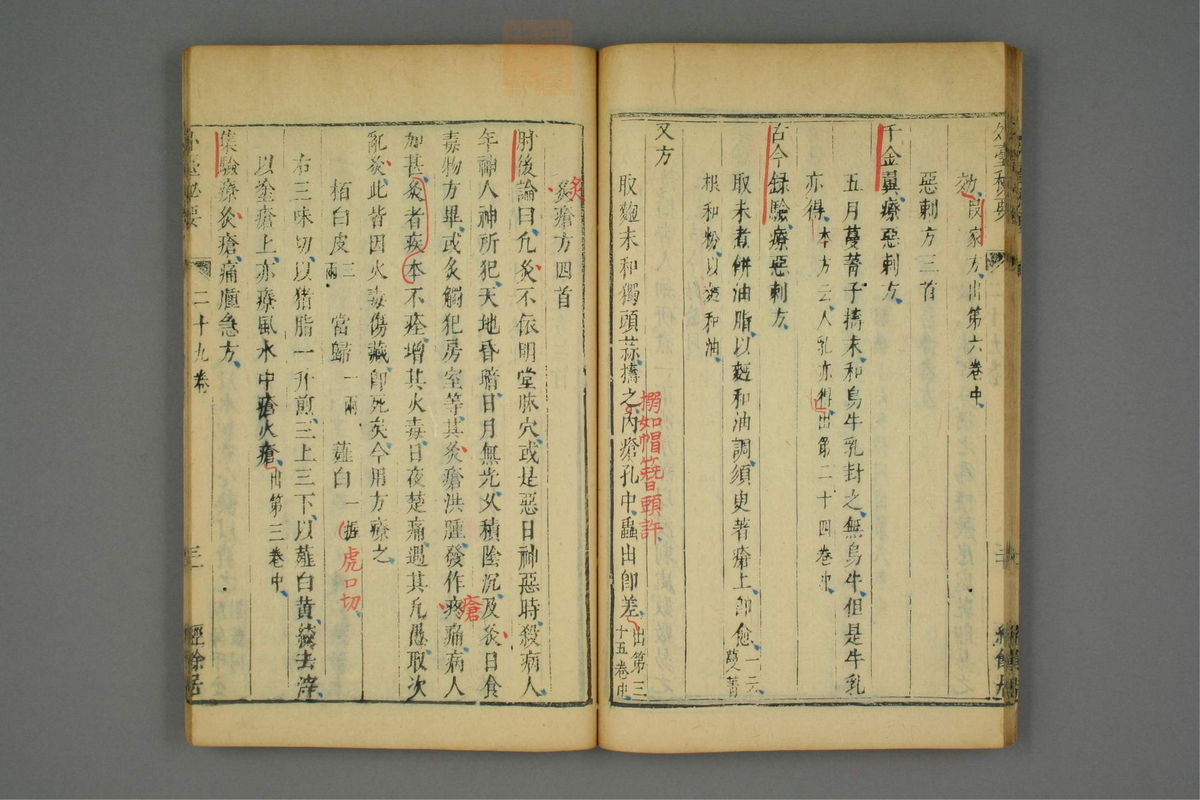 外臺秘要
效、段家方、出第六卷中、
惡刺方三首
千金翼、療惡刺方、
五月蔓菁子擣末、和烏牛乳封之、無烏牛、但是牛乳
亦得、本方云、人乳亦得、出第二十四卷中、
古今録驗、療惡刺方、
取末煮餅油脂、以麫和油調、須臾著瘡上、即愈、一云、蔓菁
根和粉、以麫和油、
又方
取麴末和獨頭蒜、擣之、內瘡孔中、蟲出即差、出第三十五卷中、
搨如帽簪頭許
灸瘡方四首
灸
肘後論曰、凡灸不依明堂脉穴、或是惡日神惡時殺、病人
年神人神所犯、天地昏暗、日月無光、久積陰沉、及灸日食
毒物方畢、或灸觸犯房室等、其灸瘡洪腫、發作疼痛、病人
瘡
加甚、灸者疾本不痊、增其火毒、日夜楚痛、遇其凡愚、取次
亂灸、此皆因火毒傷臟、即死矣、今用方療之、
栢白皮三兩 當歸一兩 薤白一握
虎口切
右三味切、以猪脂一升煎、三上三下、以薤白黃、絞去滓、
以塗瘡上、亦療風水中瘡火瘡、出第三卷中、
集驗療灸瘡、痛腫急方、
外臺秘要 二十九卷 三 經餘居